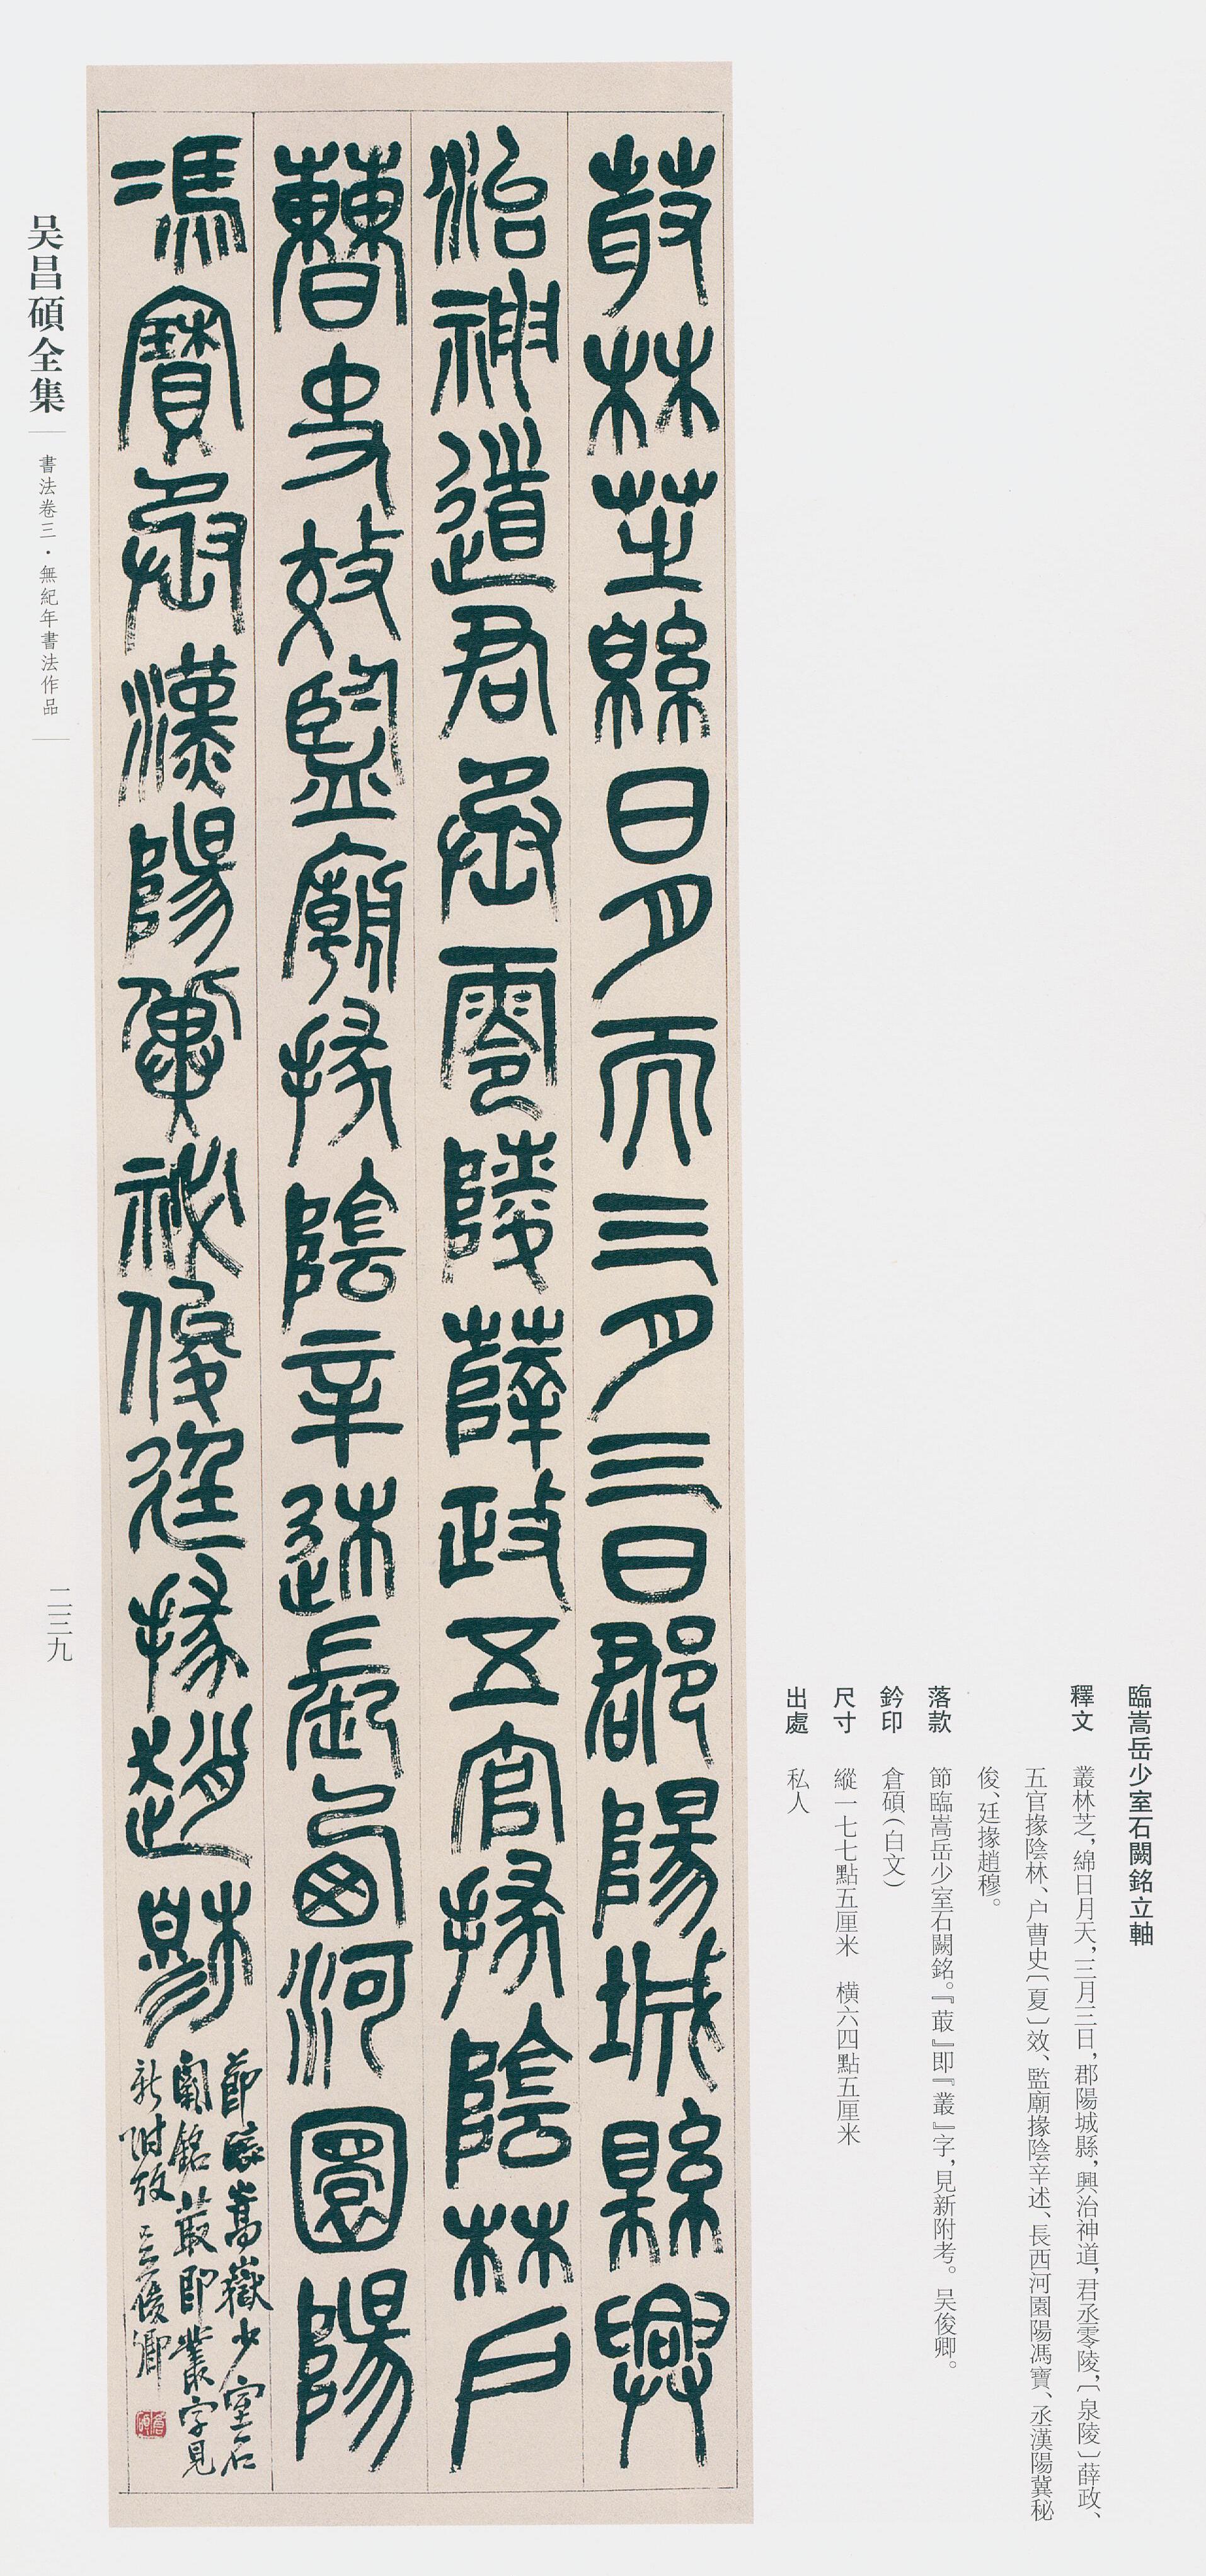 臨嵩岳少室石闕銘立軸
釋文　叢林芝，綿日月天，三月三日，郡陽城縣，興治神道，君丞零陵，〔泉陵〕薛政、
五官掾陰林、户曹史〔夏〕效、監廟掾陰辛述、長西河園陽馮寶、丞漢陽冀秘
俊、廷掾趙穆。
落款　節臨嵩岳少室石闕銘。『菆』即『叢』字，見新附考。吴俊卿。
鈐印　倉碩（白文）
尺寸　縱一七七點五厘米　橫六四點五厘米
出處　私人
菆林芝緜日月而三月三日郡陽城縣興
治神道君丞零陵薛政五官掾陰林户
曹史效監廟掾陰辛述長西河圜陽
馮寶丞漢陽冀祕俊廷掾趙穆
節臨嵩嶽少室石
闕銘菆即叢字見
新附攷　吴俊卿
倉碩
吴昌碩全集
書法卷三·無紀年書法作品
二三九